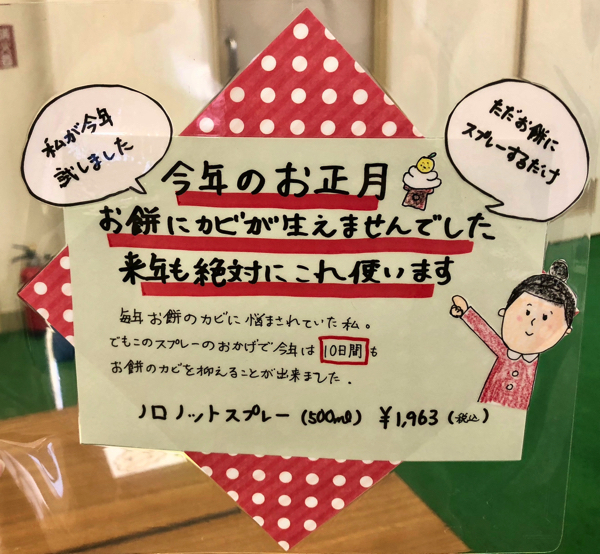 私が今年
試しました
ただお餅に
スプレーするだけ
今年のお正月
お餅にカビが生えませんでした
来年も絶対にこれ使います
毎年お餅のカビに悩まされていた私。
でもこのスプレーのおかげで今年は10日間も
お餅のカビを抑えることが出来ました.
ノロノットスプレー(500ml) ¥1,963(税込)